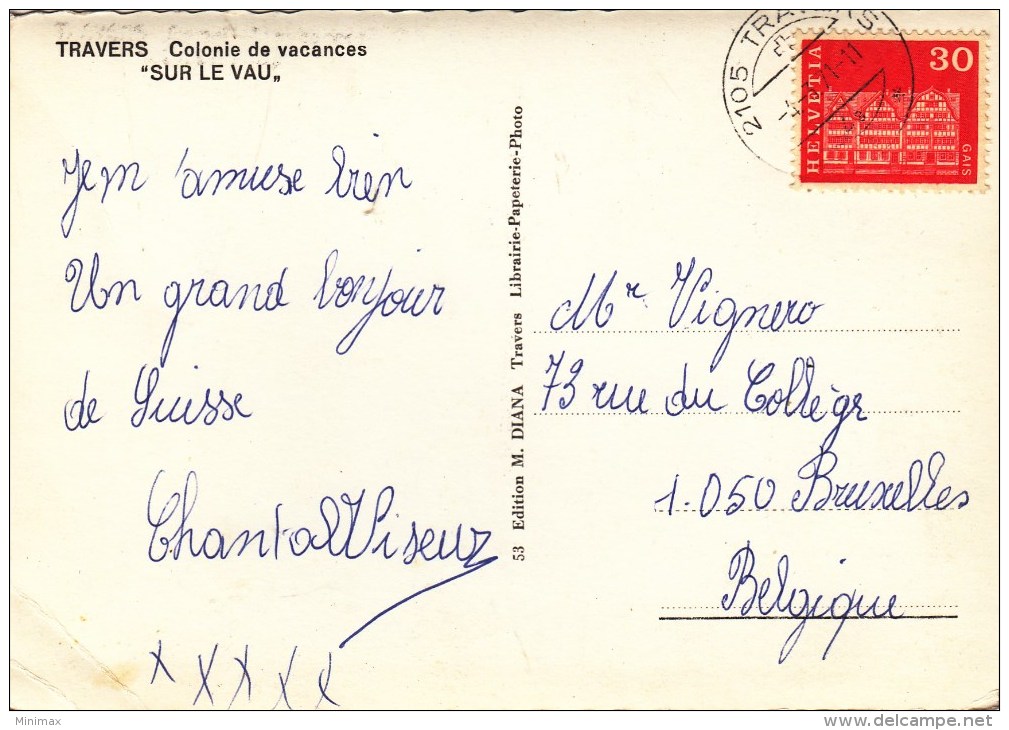 TRAVERS Colonie de vacances
"SUR LE VAU„
Je m'amuse bien
Un grand bonjour
de Suisse
Chantal Viseur
x x x x x
53 Edition M. DIANA Travers Librairie-Papeterie-Photo
2105 TRAVERS
HELVETIA
30
GAIS
Mr Vignero
73 rue du Collège
1.050 Bruxelles
Belgique
Minimax
www.delcampe.net